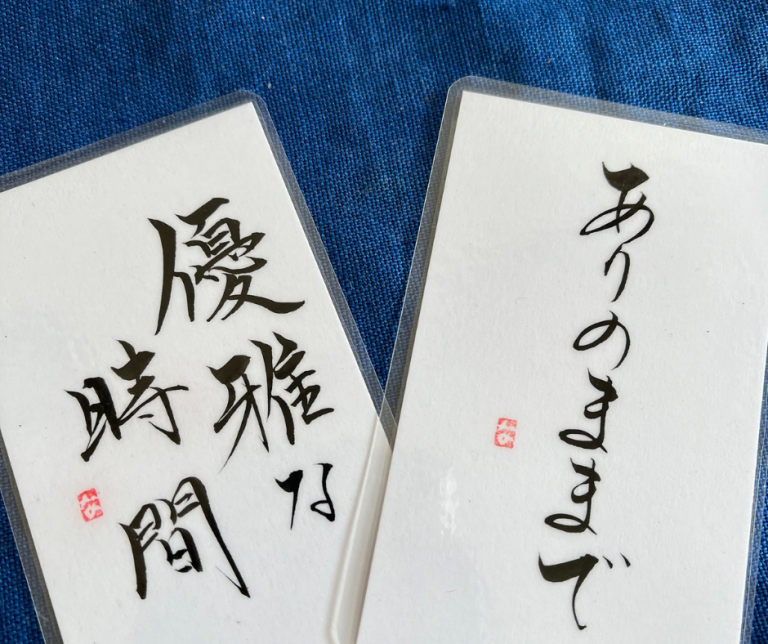 優雅な
時間
ありのままで